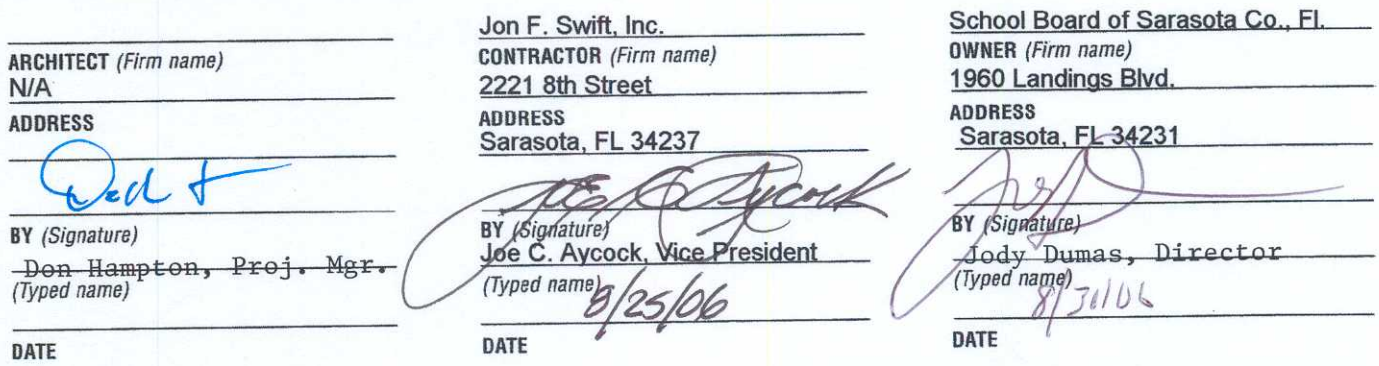 ARCHITECT (Firm name)
N/A
ADDRESS
BY (Signature)
Don Hampton, Proj. Mgr.
(Typed name)
DATE
Jon F. Swift, Inc.
CONTRACTOR (Firm name)
2221 8th Street
ADDRESS
Sarasota, FL 34237
Joe C Aycock
BY (Signature)
Joe C. Aycock, Vice President
(Typed name)
8/25/06
DATE
School Board of Sarasota Co., Fl.
OWNER (Firm name)
1960 Landings Blvd.
ADDRESS
Sarasota, FL 34231
BY (Signature)
Jody Dumas, Director
(Typed name)
DATE